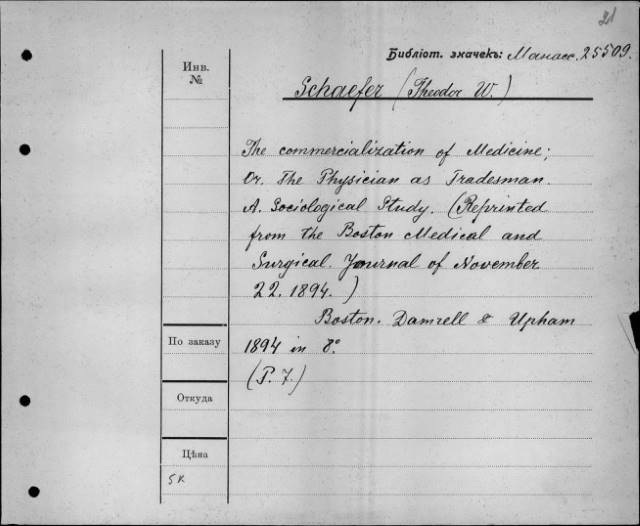 21
Библіот. значекъ: Манасс. 25509.
Инв.
№
Schaefer (Theodor W.)
The commercialization of Medicine;
Or. The Physician as Tradesman.
A. Sociological Study. (Reprinted
from the Boston Medical and
Surgical. Journal of November
22. 1894.)
Boston. Damrell & Upham
По заказу
1894 in 8°.
(P. 7.)
Откуда
Цѣна
5 к.